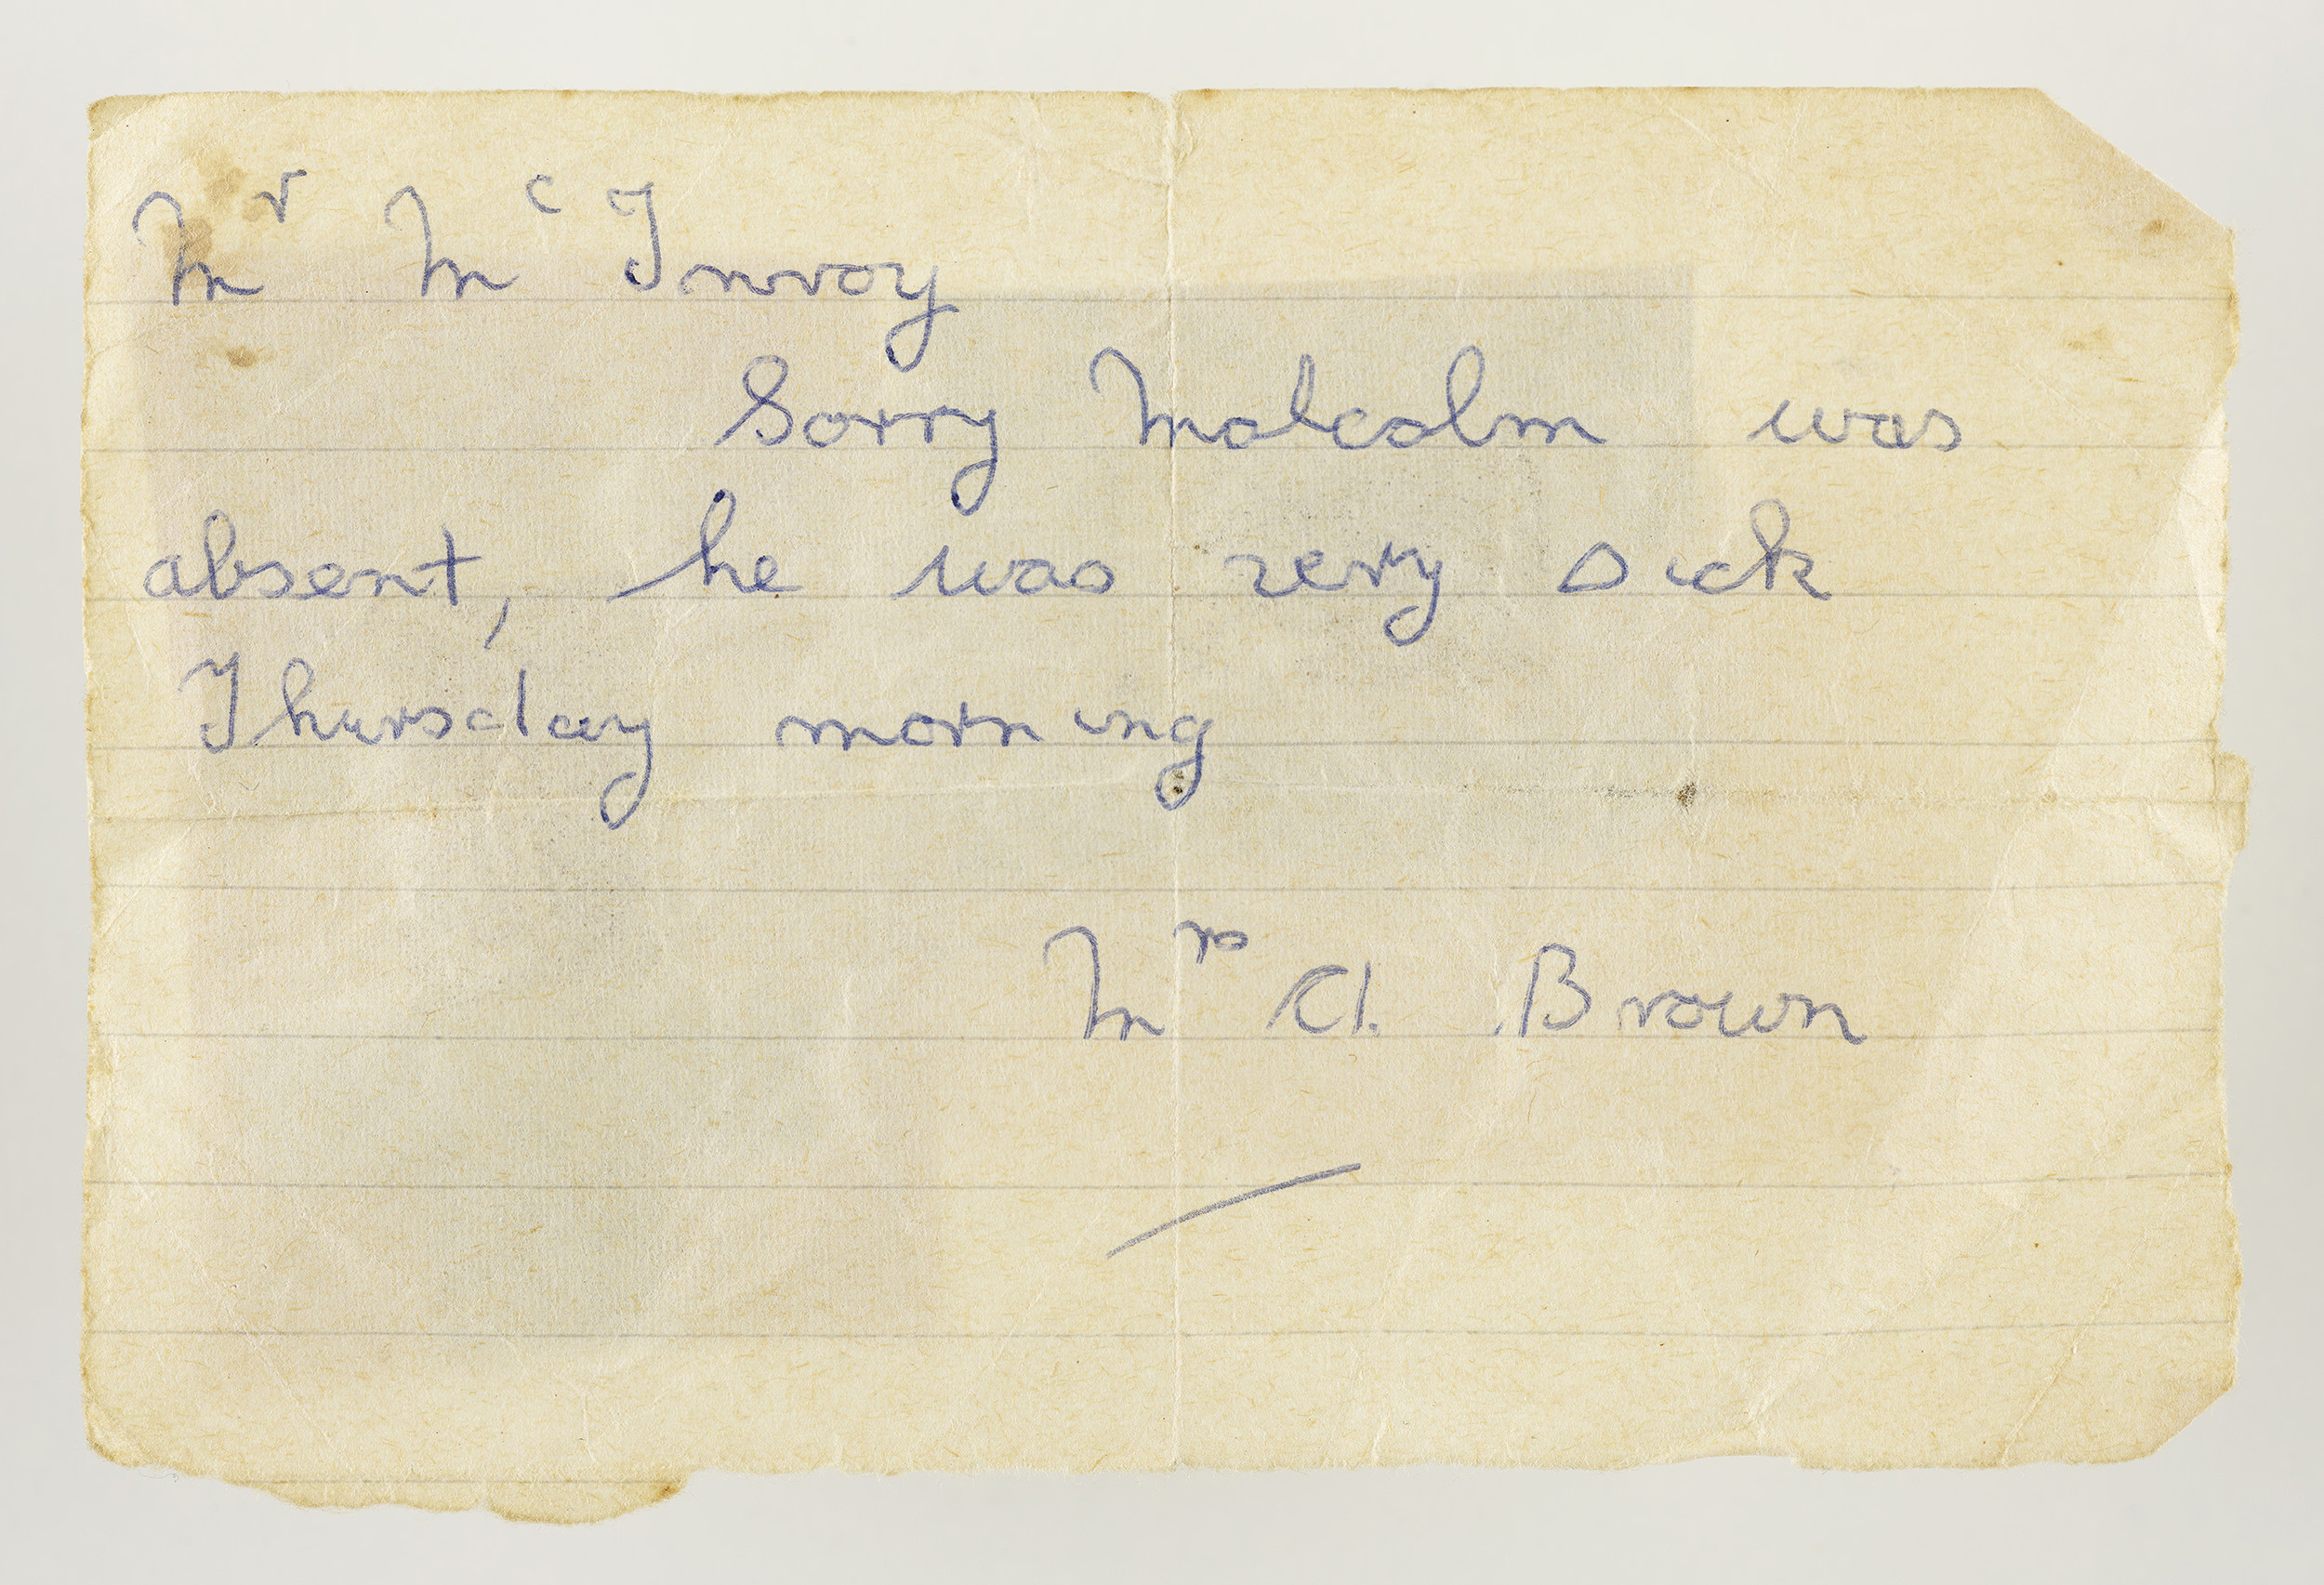 Mr McInvoy
Sorry Malcolm was
absent, he was very sick
Thursday morning
Mrs A. Brown